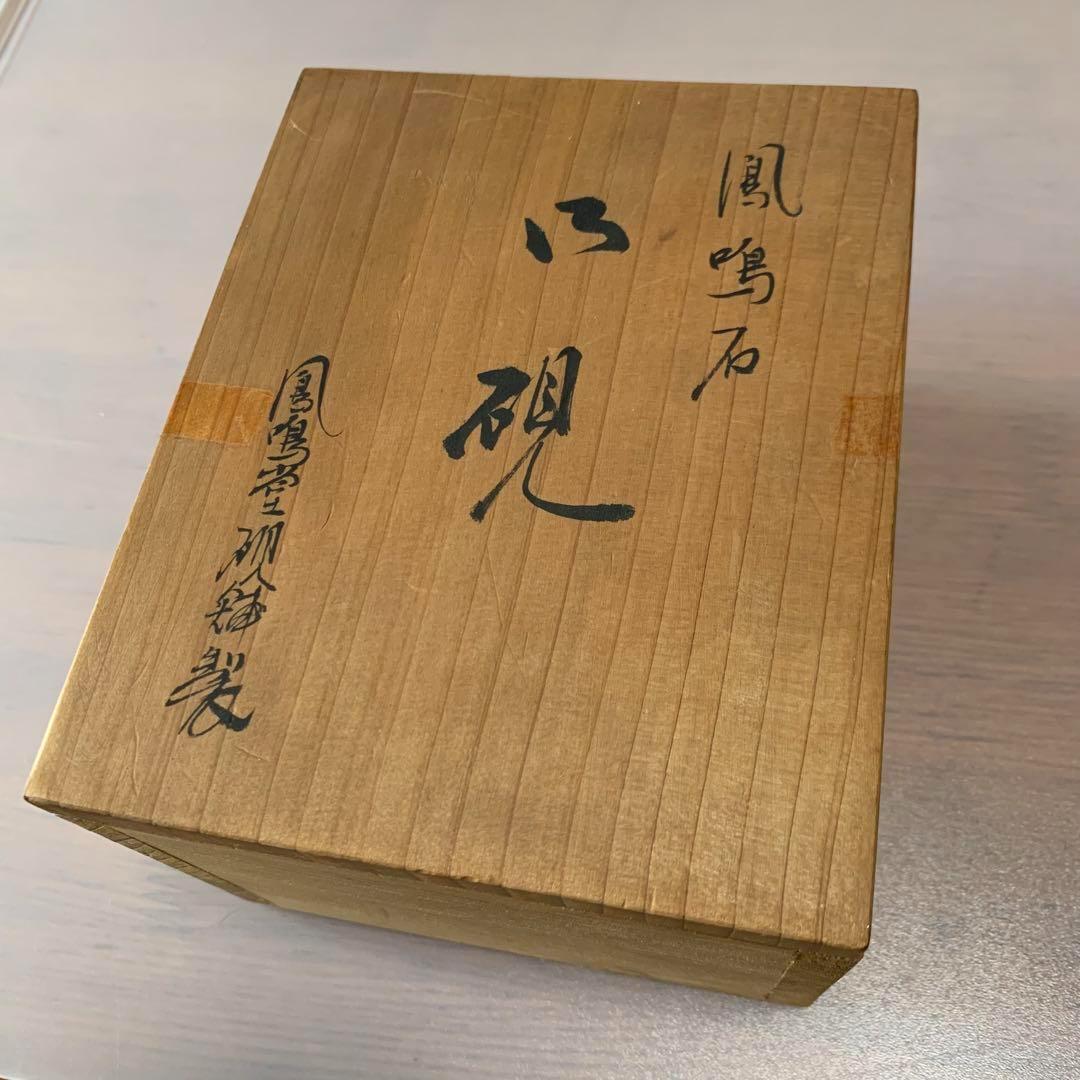 鳳鳴石
御硯
鳳鳴堂硯舗製